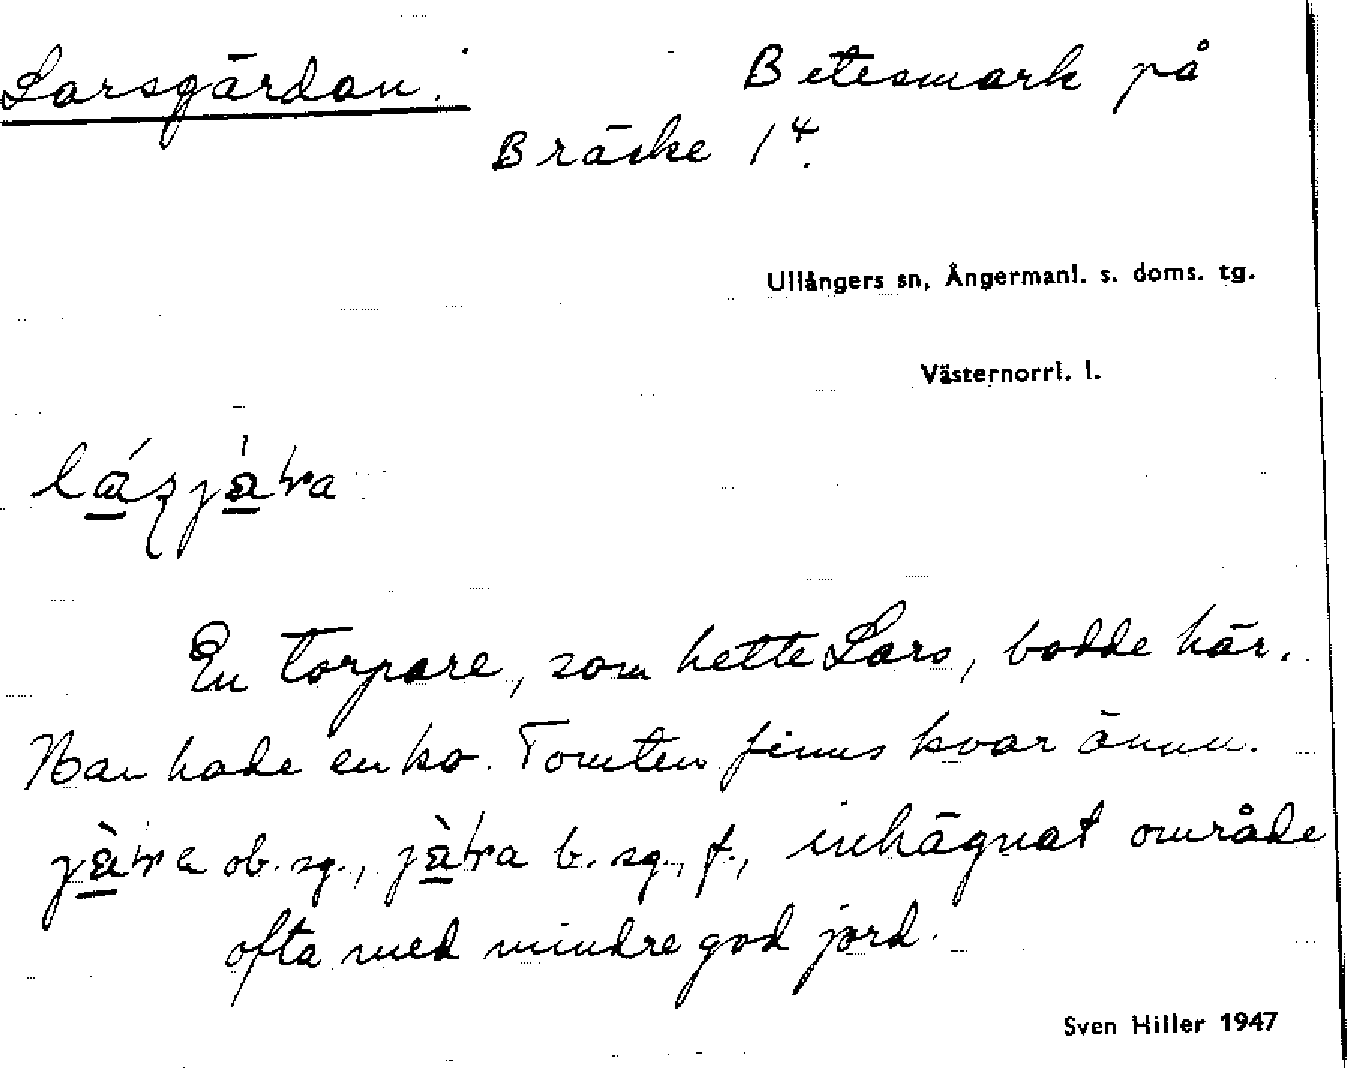 Larsgärdan. Betesmark på
Bräcke 1⁴.
Ullångers sn, Ångermanl. s. doms. tg.
Västernorrl. l.
En torpare, som hette Lars, bodde här.
Han hade en ko. Tomten finns kvar ännu.
ob. sg., b. sg., f., inhägnat område
ofta med mindre god jord.
Sven Hiller 1947